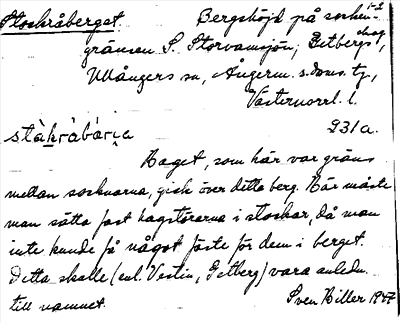 Stockråberget. Bergshöjd på socken- 1-2
gränsen S. Storvamsjön, Getbergs skog,
Ullångers sn, Ångerm. s. doms. tg,
Västernorrl. l.
ståkråbárja 231a.
Haget, som här var gräns
mellan socknarna, gick över detta berg. Här måste
man sätta fast hagstörarna i stockar, då man
inte kunde få något fäste för dem i berget.
Detta skulle (enl. Vestin, Getberg) vara anledn.
till namnet. Sven Hiller 1947